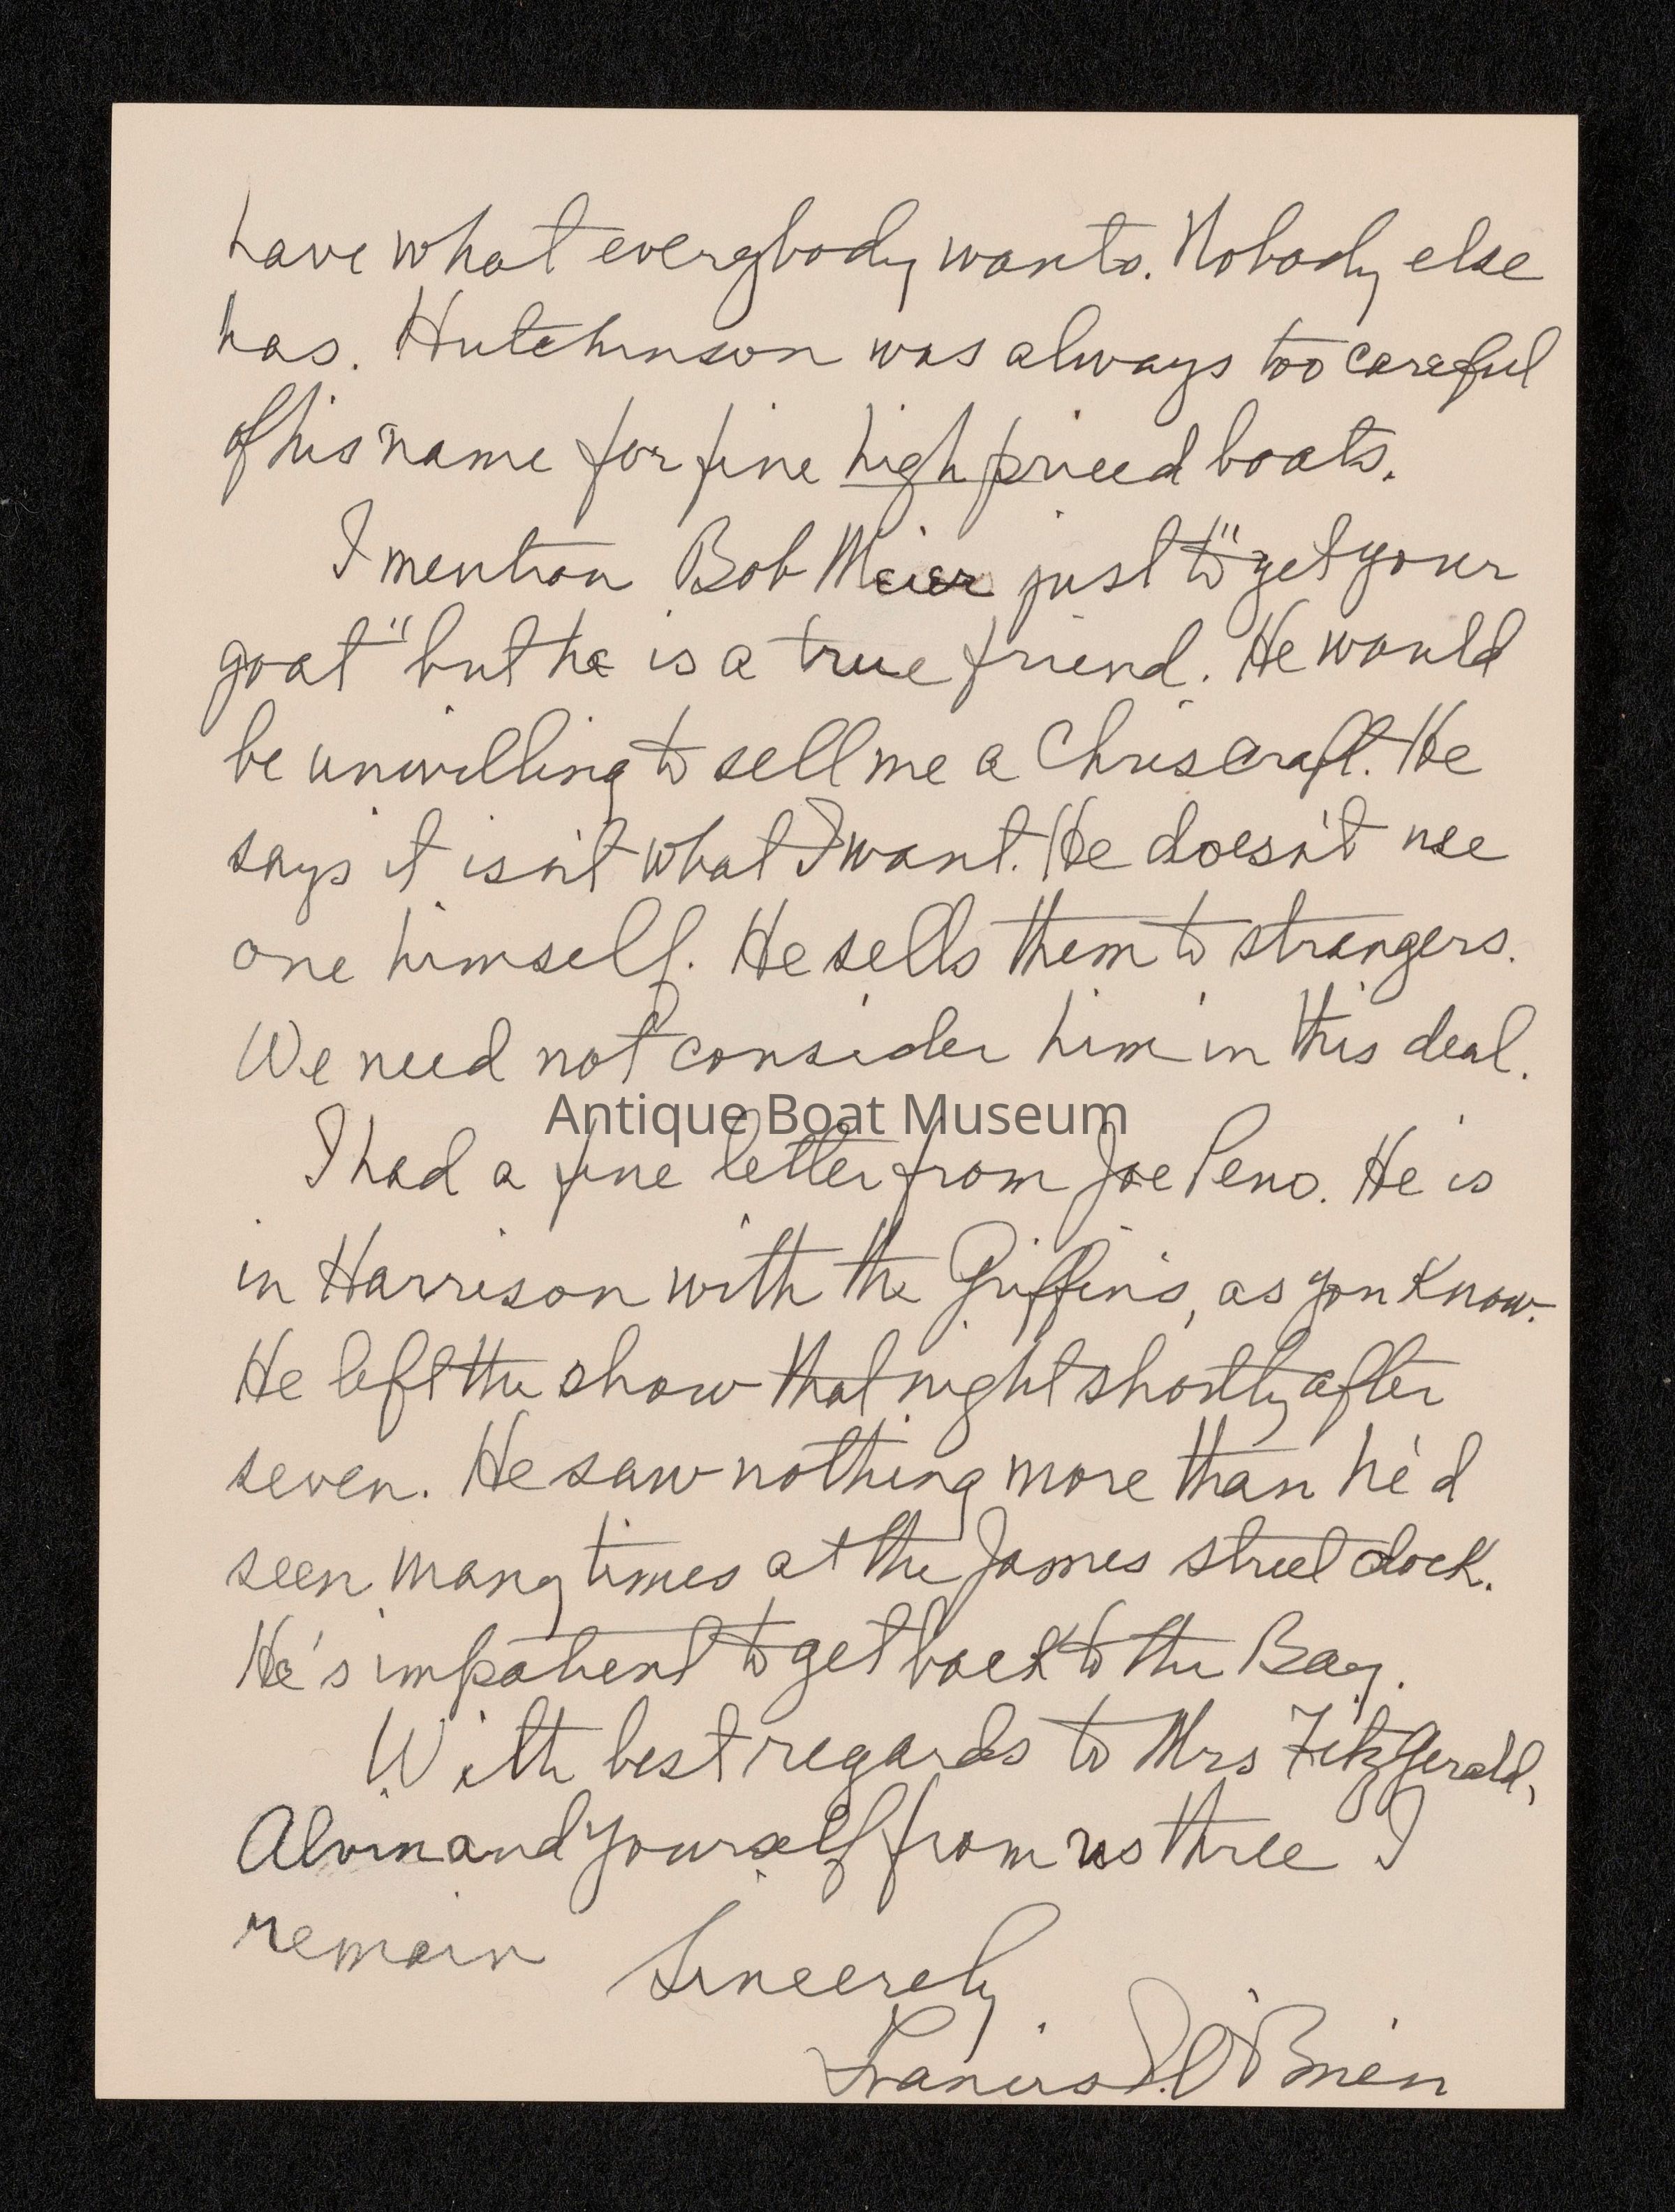 have what everybody wants. Nobody else
has. Hutchinson was always too careful
of his name for fine high priced boats.
I mention Bob Meier just to "get your
goat" but he is a true friend. He would
be unwilling to sell me a Chriscraft. He
says it isn't what I want. He doesn't use
one himself. He sells them to strangers.
We need not consider him in this deal.
Antique Boat Museum
I had a fine letter from Joe Peno. He is
in Harrison with the Griffins, as you know.
He left the show that night shortly after
seven. He saw nothing more than he'd
seen many times at the James street dock.
He's impatient to get back to the Bay.
With best regards to Mrs FitzGerald,
Alvin and yourself from us three I
remain Sincerely
Francis O'Brien